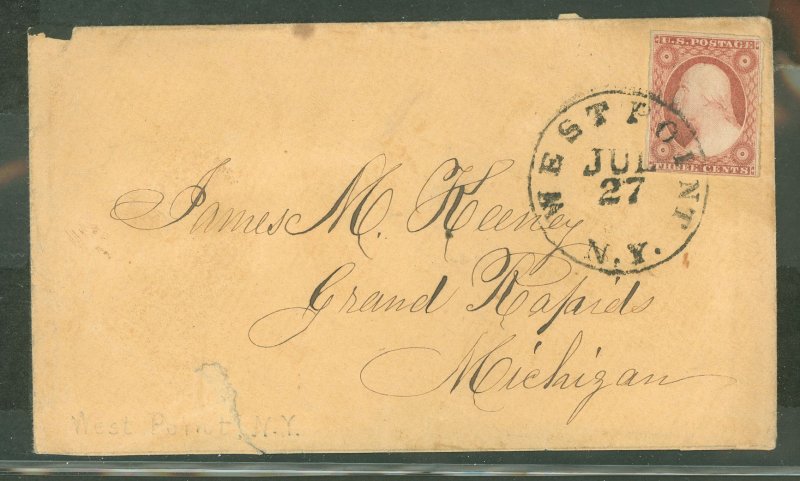 U.S. POSTAGE
THREE CENTS
WEST POINT
JUL
27
N.Y.
James M. Keeney
Grand Rapids
Michigan
West Point, N.Y.